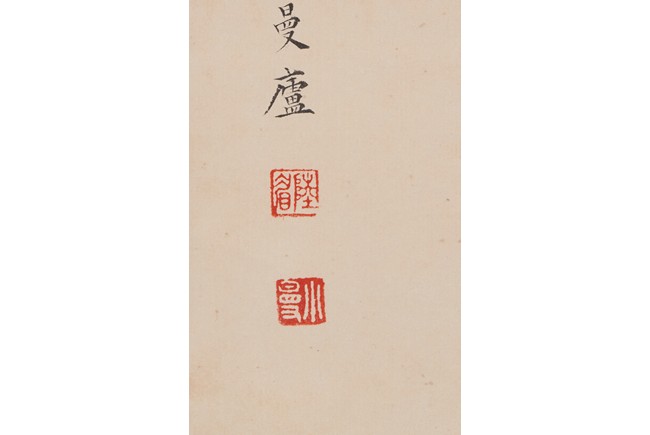 曼廬
陸眉
小曼